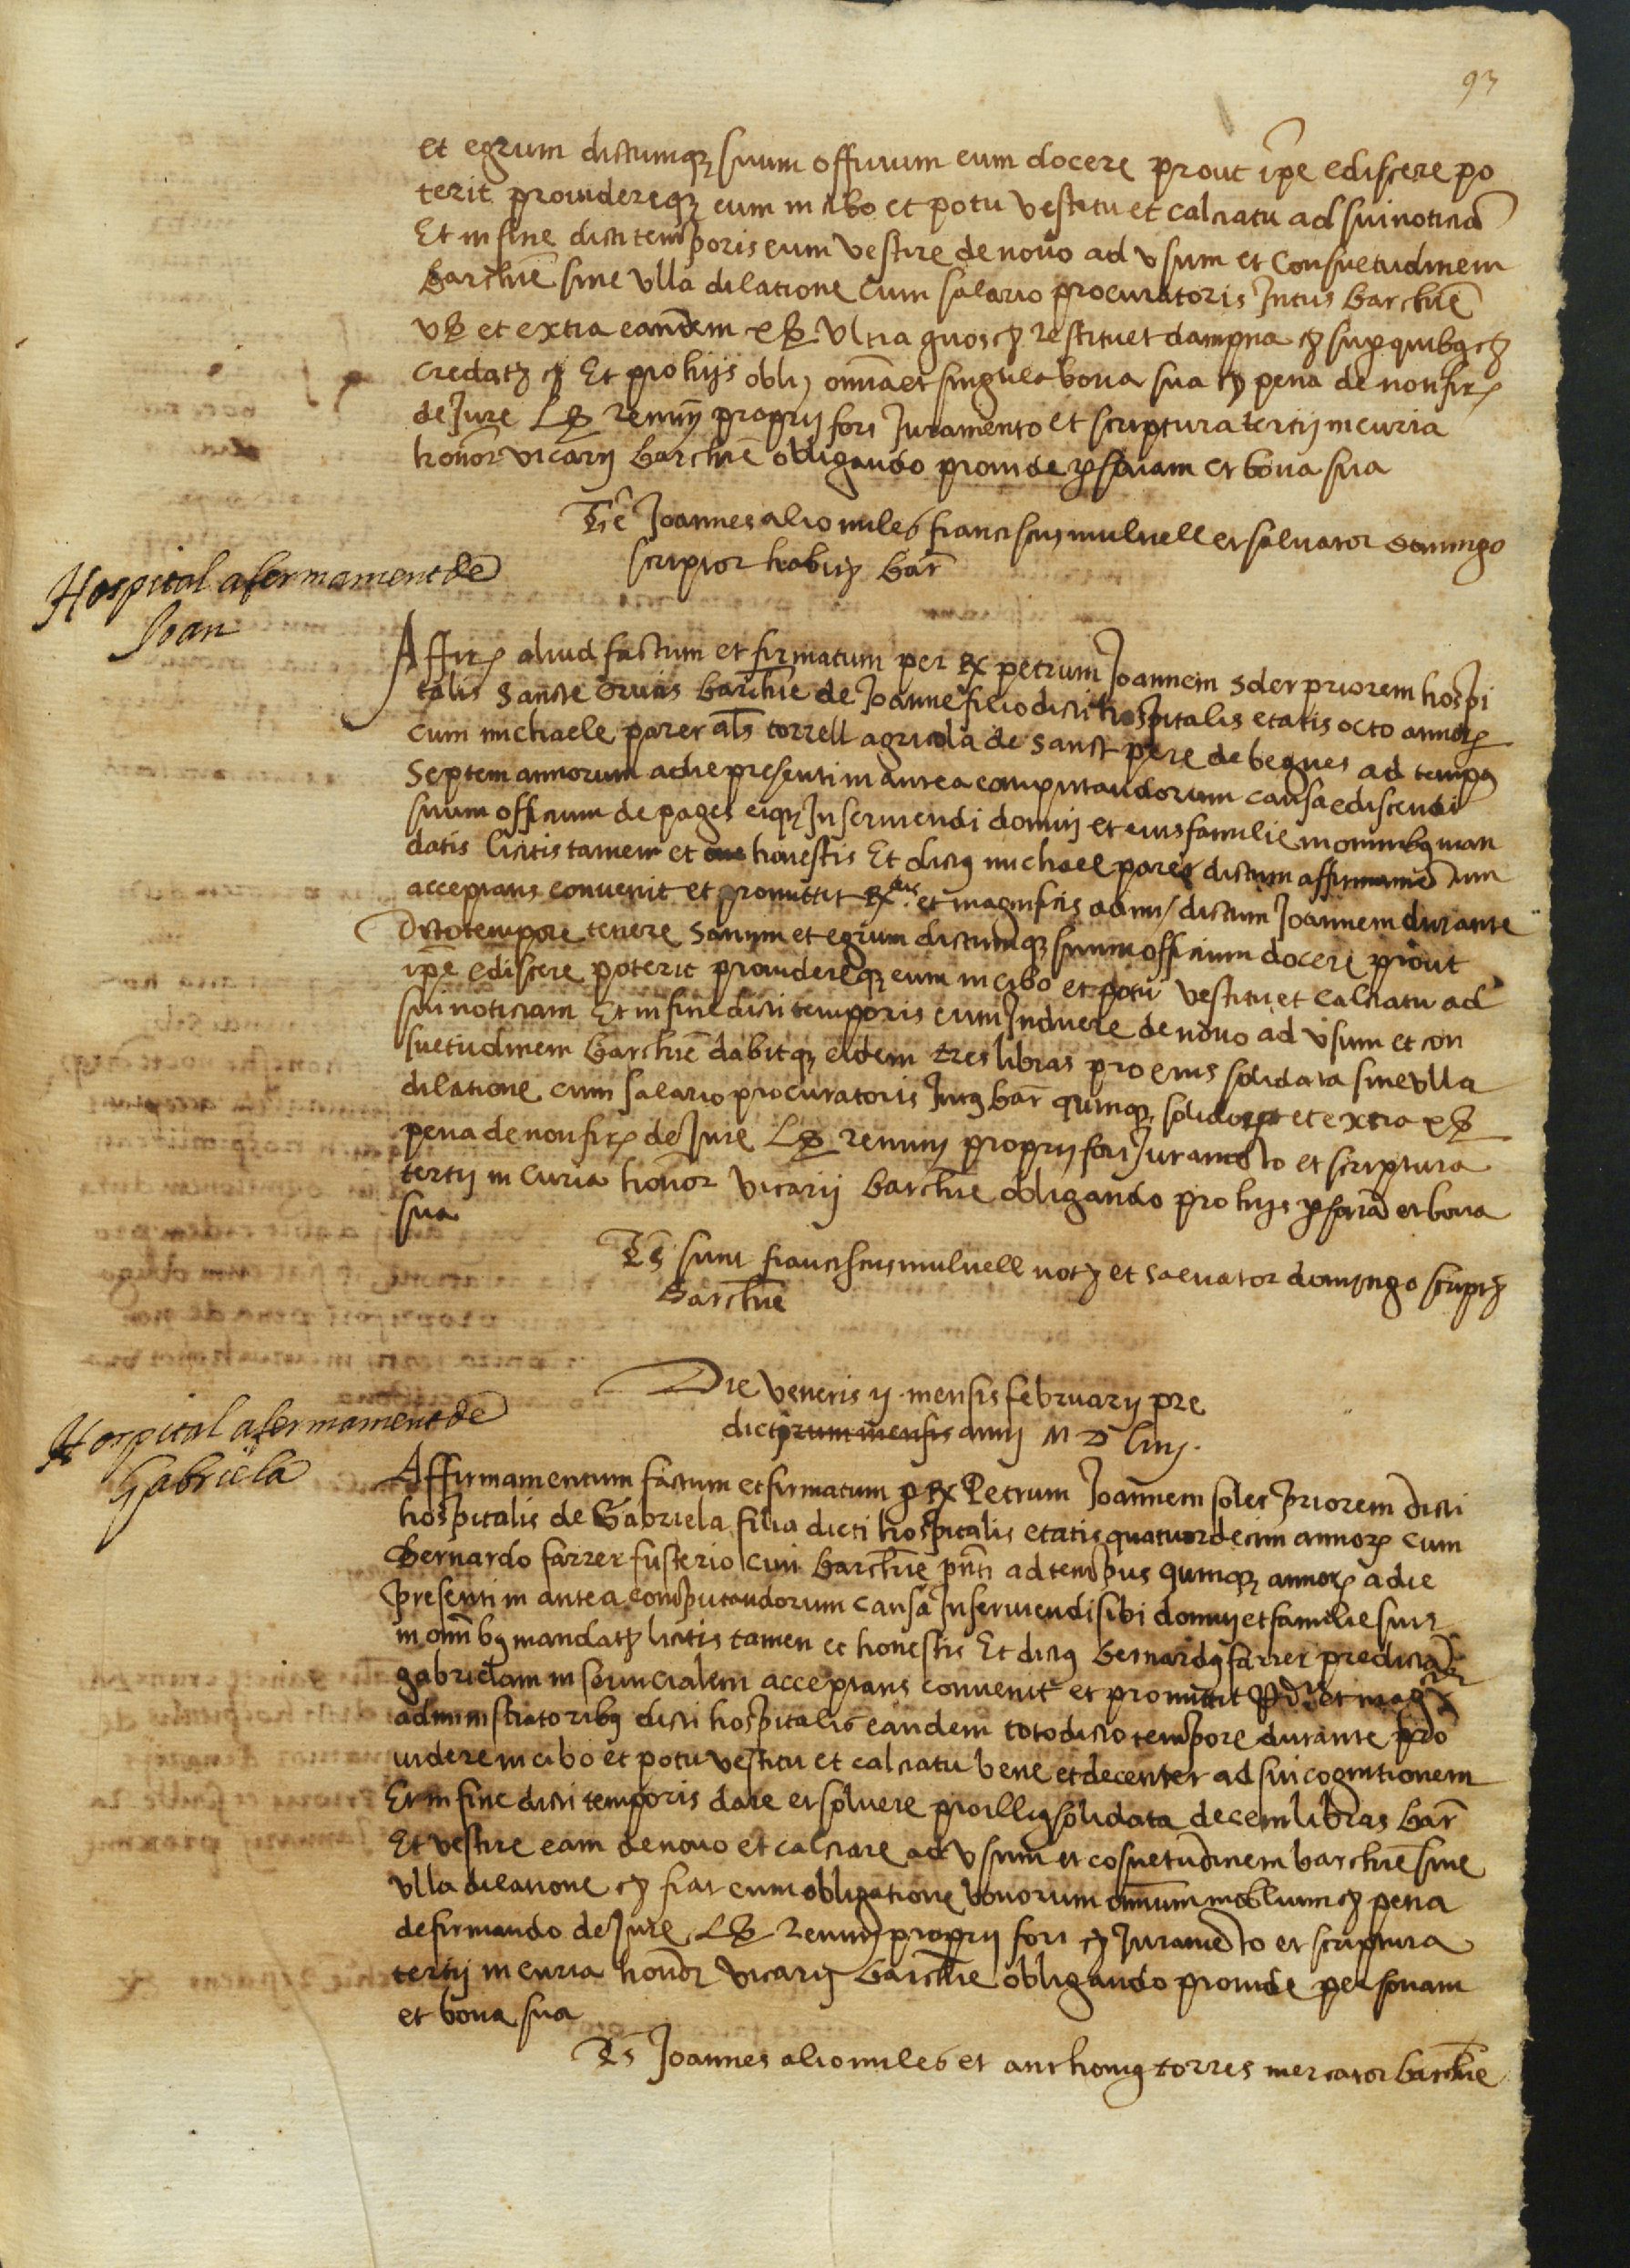 93
et egrum dictumq3 suum officium eum docere prout ipe ediscere po
terit providereq3 eum in cibo et potu vestitu et calciatu ad sui noticia
Et in fine dicti temporis eum vestire de novo ad usum et consuetudinem
barchne sine ulla dilatione cum salario procuratoris Intus barchne
et extra eandem ultra quos restituet dampna super quibus
credat Et pro hijs obli omnia et singula bona sua pena de non fir
de Jure renun proprij fori Juramento et scriptura tertij in curia
honor vicarij barchne obligando proinde personam et bona sua
Ts Joannes alio miles franciscus mulnell et salvator domingo
scriptor habit bar
Hospital afermament de
Joan
Affir aliud factum et firmatum per Rx petrum Joannem soler priorem hospi
talis sancte crucis barchne de Joanne filio dicti hospitalis etatis octo annor
cum michaele parer als torrell agricola de sanct pere de begues ad temps
septem annorum a die presenti in antea computandorum causa ediscendi
suum officium de pages eiq3 Inserviendi domui et eius familie in omnibus man
datis licitis tamen et honestis Et dictus michael parer dictum affirmamentum
acceptans convenit et promittit Rx dis et magnificis admi dictum Joannem durante
dicto tempore tenere sanum et egrum dictumq3 suum officium docere prout
ipe ediscere poterit providereq3 eum in cibo et potu vestitu et calciatu ad
sui noticiam Et in fine dicti temporis eum Induere de novo ad usum et con
suetudinem barchne dabitq3 eidem tres libras pro eius solidata sine ulla
dilatione cum salario procuratoris Intus bar quinq3 solidor et extra
pena de non fir de Jure renun proprij fori Juramento et scriptura
tertij in curia honor vicarij barchne obligando pro hijs personam et bona
sua
Ts sunt franciscus mulnell not et salvator domingo script
barchne
Die veneris ij mensis februarij pre
dicti rum mensis anni M D liiij
Hospital afermament de
Gabriela
Affirmamentum factum et firmatum p Rx Petrum Joannem soler priorem dicti
hospitalis de Gabriela filia dicti hospitalis etatis quatuordecim annor cum
Bernardo farrer fusterio civi barchne pnti ad tempus quinq3 annor a die
presenti in antea computandorum causa Inserviendi sibi domui et familie sue
in omnibus mandatis licitis tamen et honestis Et dictus Bernardus farrer predicta
gabrielam in servicialem acceptans convenit et promittit Rdis et mag
administratoribus dicti hospitalis eandem toto dicto tempore durante pro
videre in cibo et potu vestitu et calciatu bene et decenter ad sui cognitionem
Et in fine dicti temporis dare et solvere pro illius solidata decem libras bar
Et vestire eam de novo et calciare ad usum et cosuetudinem barchne sine
ulla dilatione fiat cum obligatione bonorum omnium moblium pena
de firmando de Jure renun proprij fori Juramento et scriptura
tertij in curia honor vicarij barchne obligando proinde personam
et bona sua
Ts Joannes alio miles et anthonius torres mercator barchne